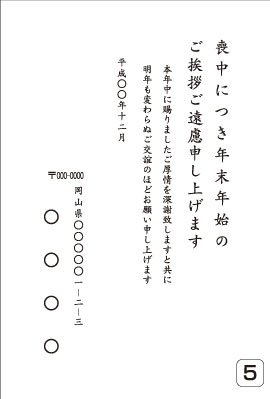 喪中につき年末年始の
ご挨拶ご遠慮申し上げます
本年中に賜りましたご厚情を深謝致しますと共に
明年も変わらぬご交誼のほどお願い申し上げます
平成〇〇年十二月
〒000-0000
岡山県〇〇〇〇〇一－二－三
〇〇〇〇
5